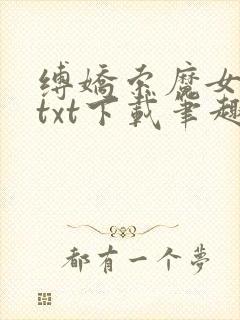 缚娇索魔女
txt下载笔趣
都有一个梦